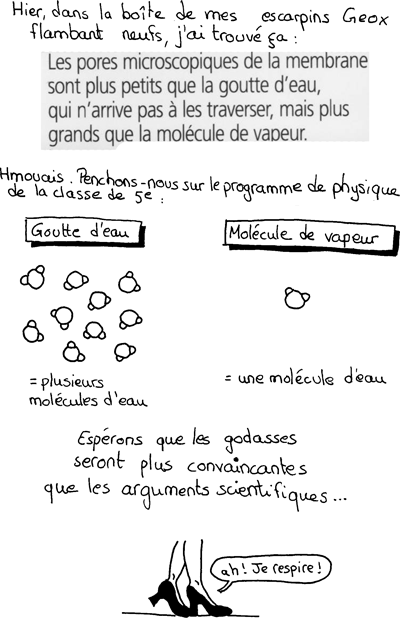 Hier, dans la boîte de mes escarpins Geox
flambant neufs, j'ai trouvé ça :
Les pores microscopiques de la membrane
sont plus petits que la goutte d'eau,
qui n'arrive pas à les traverser, mais plus
grands que la molécule de vapeur.
Hmouais. Penchons-nous sur le programme de physique
de la classe de 5e :
Goutte d'eau
Molécule de vapeur
= plusieurs
molécules d'eau
= une molécule d'eau
Espérons que les godasses
seront plus convaincantes
que les arguments scientifiques...
ah! Je respire!